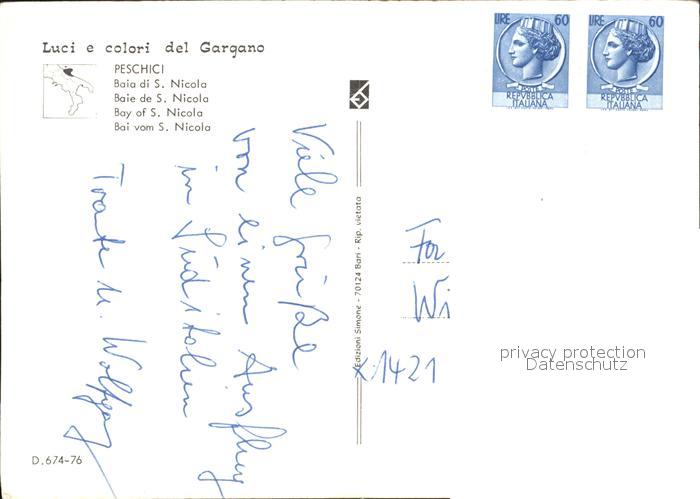 Luci e colori del Gargano
PESCHICI
Baia di S. Nicola
Baie de S. Nicola
Bay of S. Nicola
Bai vom S. Nicola
LIRE 60
POSTE
REPVBBLICA
ITALIANA
LIRE 60
POSTE
REPVBBLICA
ITALIANA
Viele Grüße
von einem Ausflug
in Süditalien
u. Wolfgang
Edizioni Simone - 70124 Bari - Rip. vietata
Wi
1421
privacy protection
Datenschutz
D.674-76